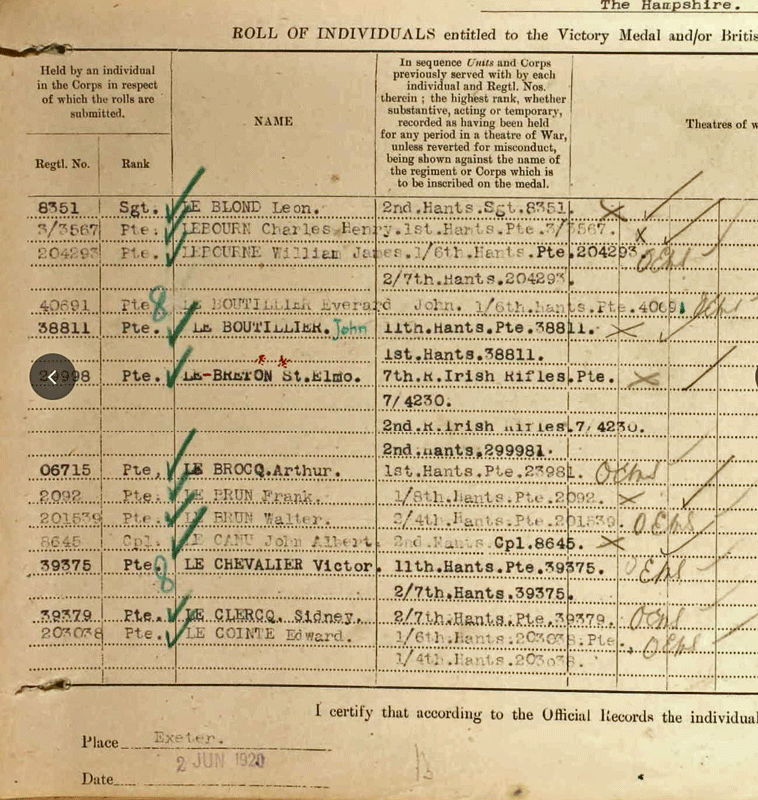 The Hampshire.
ROLL OF INDIVIDUALS entitled to the Victory Medal and/or Britis
Held by an individual
in the Corps in respect
of which the rolls are
submitted.
Regtl. No.
Rank
NAME
In sequence Units and Corps
previously served with by each
individual and Regtl. Nos.
therein ; the highest rank, whether
substantive, acting or temporary,
recorded as having been held
for any period in a theatre of War,
unless reverted for misconduct,
being shown against the name of
the regiment or Corps which is
to be inscribed on the medal.
Theatres of w
8351 Sgt. LE BLOND Leon. 2nd.Hants.Sgt.8351.
3/3567 Pte. LEBOURN Charles Henry.1st.Hants.Pte.3/3567.
204293 Pte. LEBOURNE William James.1/6th.Hants.Pte.204293.
2/7th.Hants.204293.
40691 Pte 8 LE BOUTILLIER Everard John. 1/6th.Hants.Pte.40691
38811 Pte. LE BOUTILLIER. John 11th.Hants.Pte.38811.
1st.Hants.38811.
998 Pte. LE-BRETON St.Elmo. 7th.R.Irish Rifles.Pte.
7/4230.
2nd.R.Irish Rifles.7/4230.
2nd.Hants.299981.
06715 Pte, LE BROCQ.Arthur. 1st.Hants.Pte.23981.
2092. Pte. LE BRUN Frank. 1/8th.Hants.Pte.2092.
201539 Pte. LE BRUN Walter. 2/4th.Hants.Pte.201539.
8645 Cpl. LE CANU John Albert. 2nd.Hants.Cpl.8645.
39375 Pte. 8 LE CHEVALIER Victor. 11th.Hants.Pte.39375.
2/7th.Hants.39375.
39379 Pte. LE CLERCQ. Sidney. 2/7th.Hants.Pte.39379.
203038 Pte. LE COINTE Edward. 1/6th.Hants.203038.Pte.
1/4th.Hants.203038.
I certify that according to the Official Records the individual
Place Exeter.
2 JUN 1920
Date